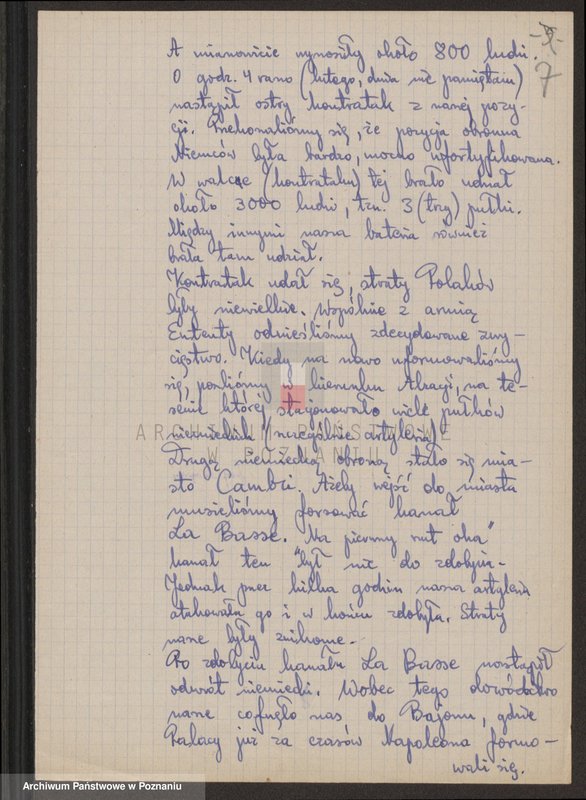 A mianowicie wynosiły około 800 ludzi.
7
O godz. 4 rano (lutego, dnia nie pamiętam)
nastąpił ostry kontratak z naszej pozy-
cji. Przekonaliśmy się, że pozycja obronna
Niemców była bardzo, mocno ufortyfikowana.
W walce (kontrataku) tej brało udział
około 3000 ludzi, tzn. 3 (trzy) pułki.
Między innymi nasza bateria również
brała tam udział.
Kontratak udał się, straty Polaków
były niewielkie. Wspólnie z armią
Ententy odnieśliśmy zdecydowane zwy-
cięstwo. Kiedy na nowo uformowaliśmy
się, poszliśmy w kierunku Alzacji, na te-
renie której stacjonowało wiele pułków
niemieckich (szczególnie artyleria)
ARCHIWUM PAŃSTWOWE
W POZNANIU
Drugą niemiecką obroną stało się mia-
sto Cambri. Ażeby wejść do miasta
musieliśmy forsować kanał
La Basse. Na pierwszy rzut oka"
kanał ten "był nie do zdobycia.-
Jednak przez kilka godzin nasza artyleria
atakowała go i w końcu zdobyła. Straty
nasze były znikome.-
Po zdobyciu kanału La Basse nastąpił
odwrót niemiecki. Wobec tego dowództwo
nasze cofnęło nas do Bajonu, gdzie
Polacy już za czasów Napoleona formo-
wali się.
Archiwum Państwowe w Poznaniu